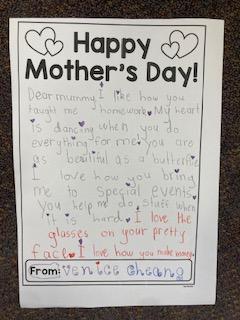 Happy
Mother's Day!
Dear mummy I like how you
taught me homework. My heart
is dancing when you do
everything for me. you are
as beautiful as a butterflie
I love how you bring
me to special events
you help me do stuff when
it is hard. I love the
glasses on your pretty
face. I love how you make money
From: Venice Cheang